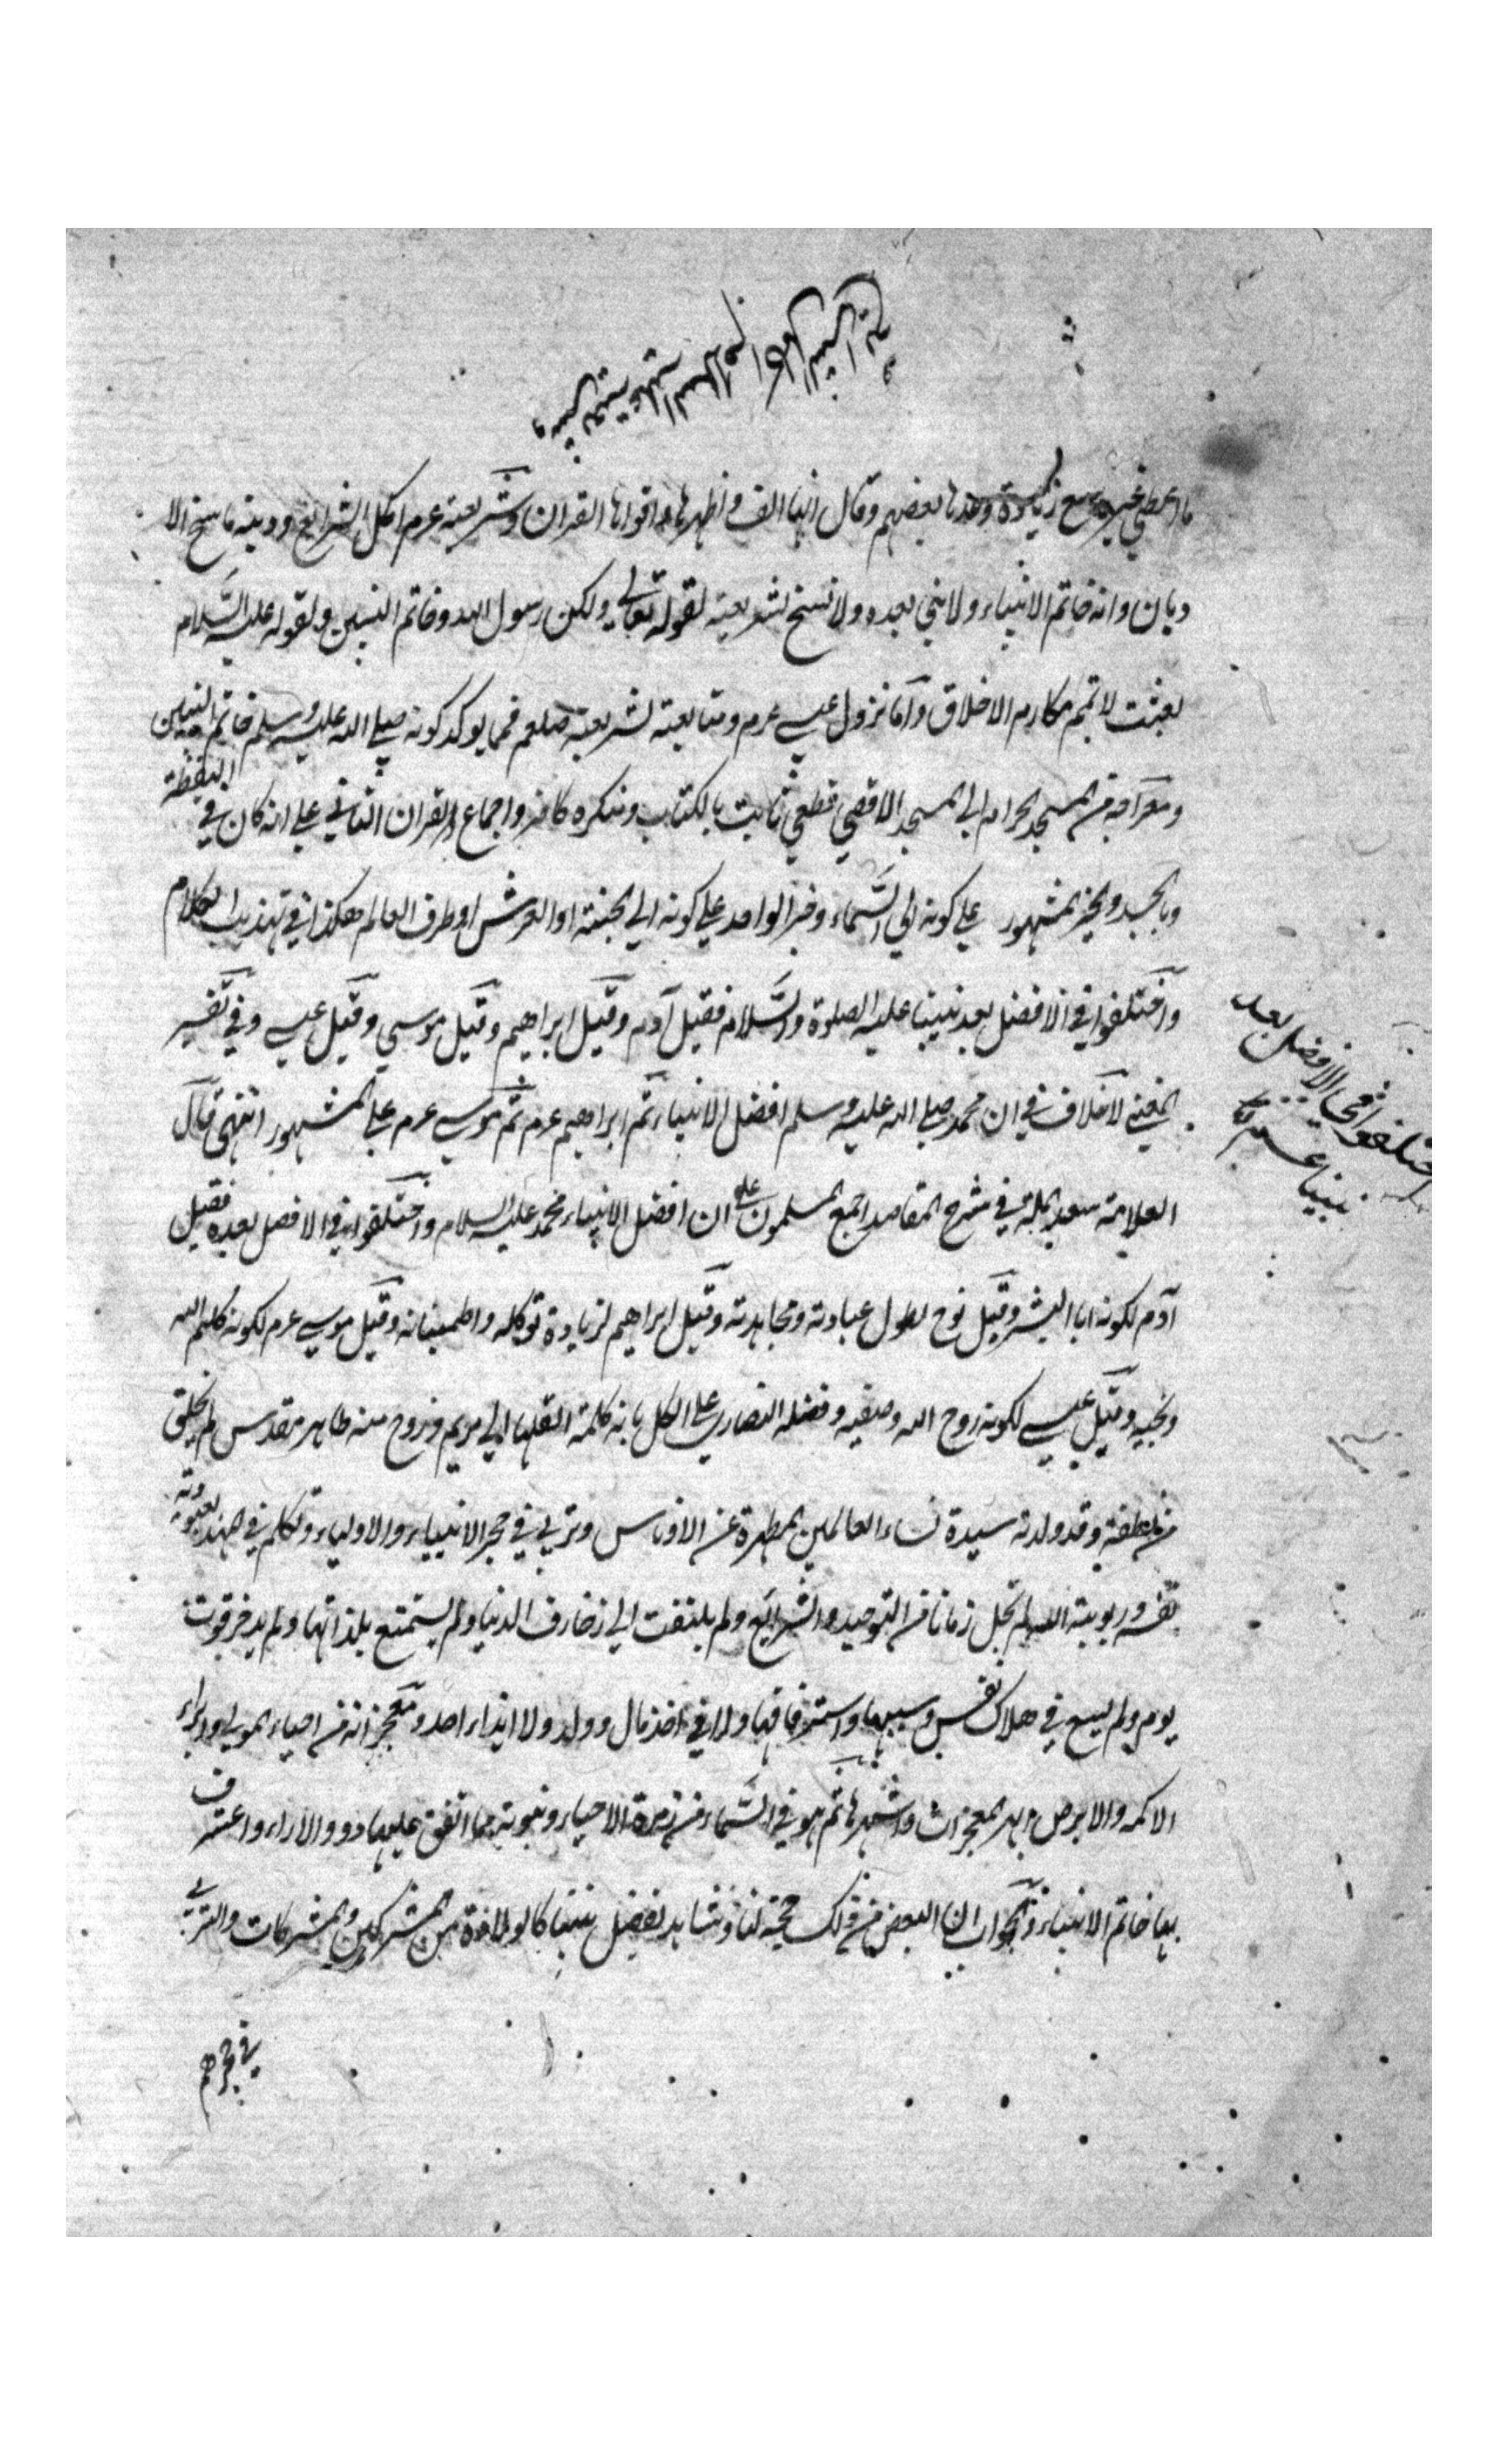 وشريعته عليه السلام اكمل الشرايع
ما اعطي غيره مع زيادة وعدها بعضهم وقال انها الف واظهرها واقواها القران وشريعته عرم اكمل الشرايع ودينه ناسخ الا
ديان وانه خاتم الانبياء ولا نبي بعده ولا نسخ لشريعته لقوله تعالي ولكن رسول الله وخاتم النبيين ولقوله عليه السلام
بعثت لاتمم مكارم الاخلاق واما نزول عيسي عرم ومتابعته لشريعته صلعم فمما يوكد كونه صلي الله عليه وسلم خاتم النبيين
ومعراجه من المسجد الحرام الي المسجد الاقصي قطعي ثابت بالكتاب ومنكره كافر واجماع القران الثاني علي انه كان في اليقظة
وبالجسد والخبر المشهور علي كونه الي السماء وخبر الواحد علي كونه الي الجنة او العرش او طرف العالم هكذا في تهذيب الكلام
واختلفوا في الافضل بعد نبينا عليه الصلوة والسلام فقيل آدم وقيل ابراهيم وقيل موسي وقيل عيسي وفي تفسير
المغني لا خلاف في ان محمد صلي الله عليه وسلم افضل الانبياء ثم ابراهيم عرم ثم موسي عرم علي المشهور انتهي قال
العلامة سعد الملة في شرح المقاصد اجمع المسلمون علي ان افضل الانبياء محمد عليه السلام واختلفوا في الافضل بعده فقيل
آدم لكونه ابا البشر وقيل نوح لطول عبادته ومجاهدته وقيل ابراهيم لزيادة توكله واطمينانه وقيل موسي عرم لكونه كليم الله
ونجيه وقيل عيسي لكونه روح الله وصفيه وفضله النصاري علي الكل بانه كلمة القاها الي مريم وروح منه طاهر مقدس لم يخلق
من نطفة وقد ولدته سيدة نساء العالمين المطهرة عن الادناس وتربي في حجر الانبياء والاولياء وتكلم في المهد بعبودية
نفسه وربوبية الله لم يخل زمانا من التوحيد والشرائع ولم يلتفت الي زخارف الدنيا ولم يستمتع بلذاتها ولم يدخر قوت
يوم ولم يسع في هلاك نفس وسبيها واسترقاقها ولا في اخذ مال وولد ولا ايذاء احد ومعجزاته من احياء الموتي وابراء
الاكمه والابرص ابهر المعجزات واشهرها ثم هو في السماء من زمرة الاحياء ونبوته مما اتفق عليها ذوو الاراء واعترف
بها خاتم الانبياء والجواب ان البعض من ذلك حجة لنا وشاهد لفضل نبينا كالولادة من المشركين والمشركات والتربي
في حجرهم
اختلفوا في الافضل بعد
نبينا عليه السلام